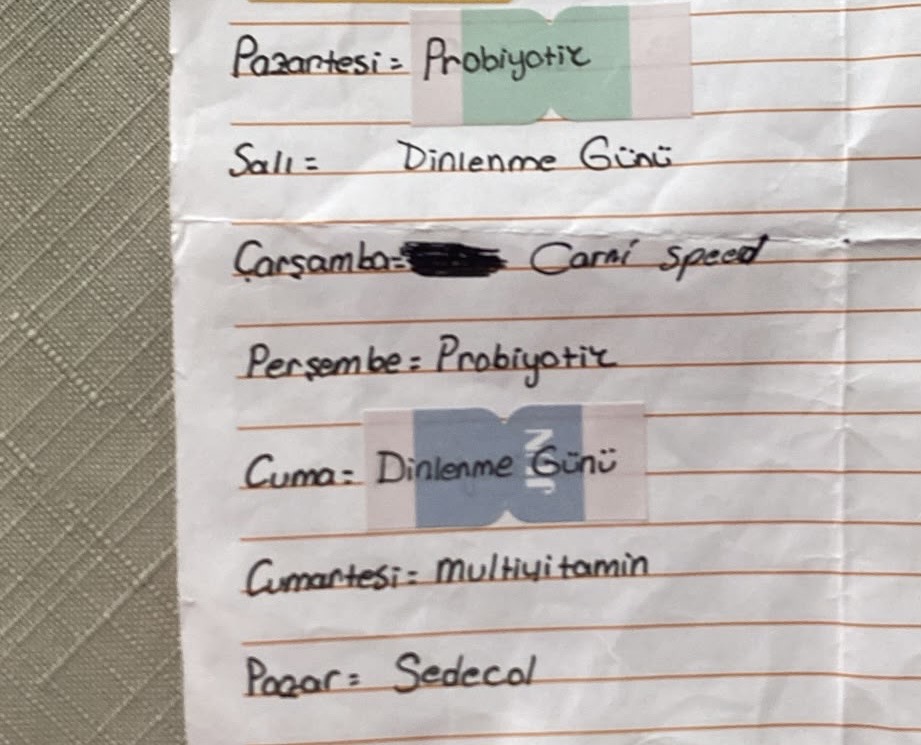 Pazartesi = Probiyotik
Salı = Dinlenme Günü
Çarşamba = Carni Speed
Perşembe = Probiyotik
Cuma = Dinlenme Günü
Cumartesi = multivitamin
Pazar = Sedecal